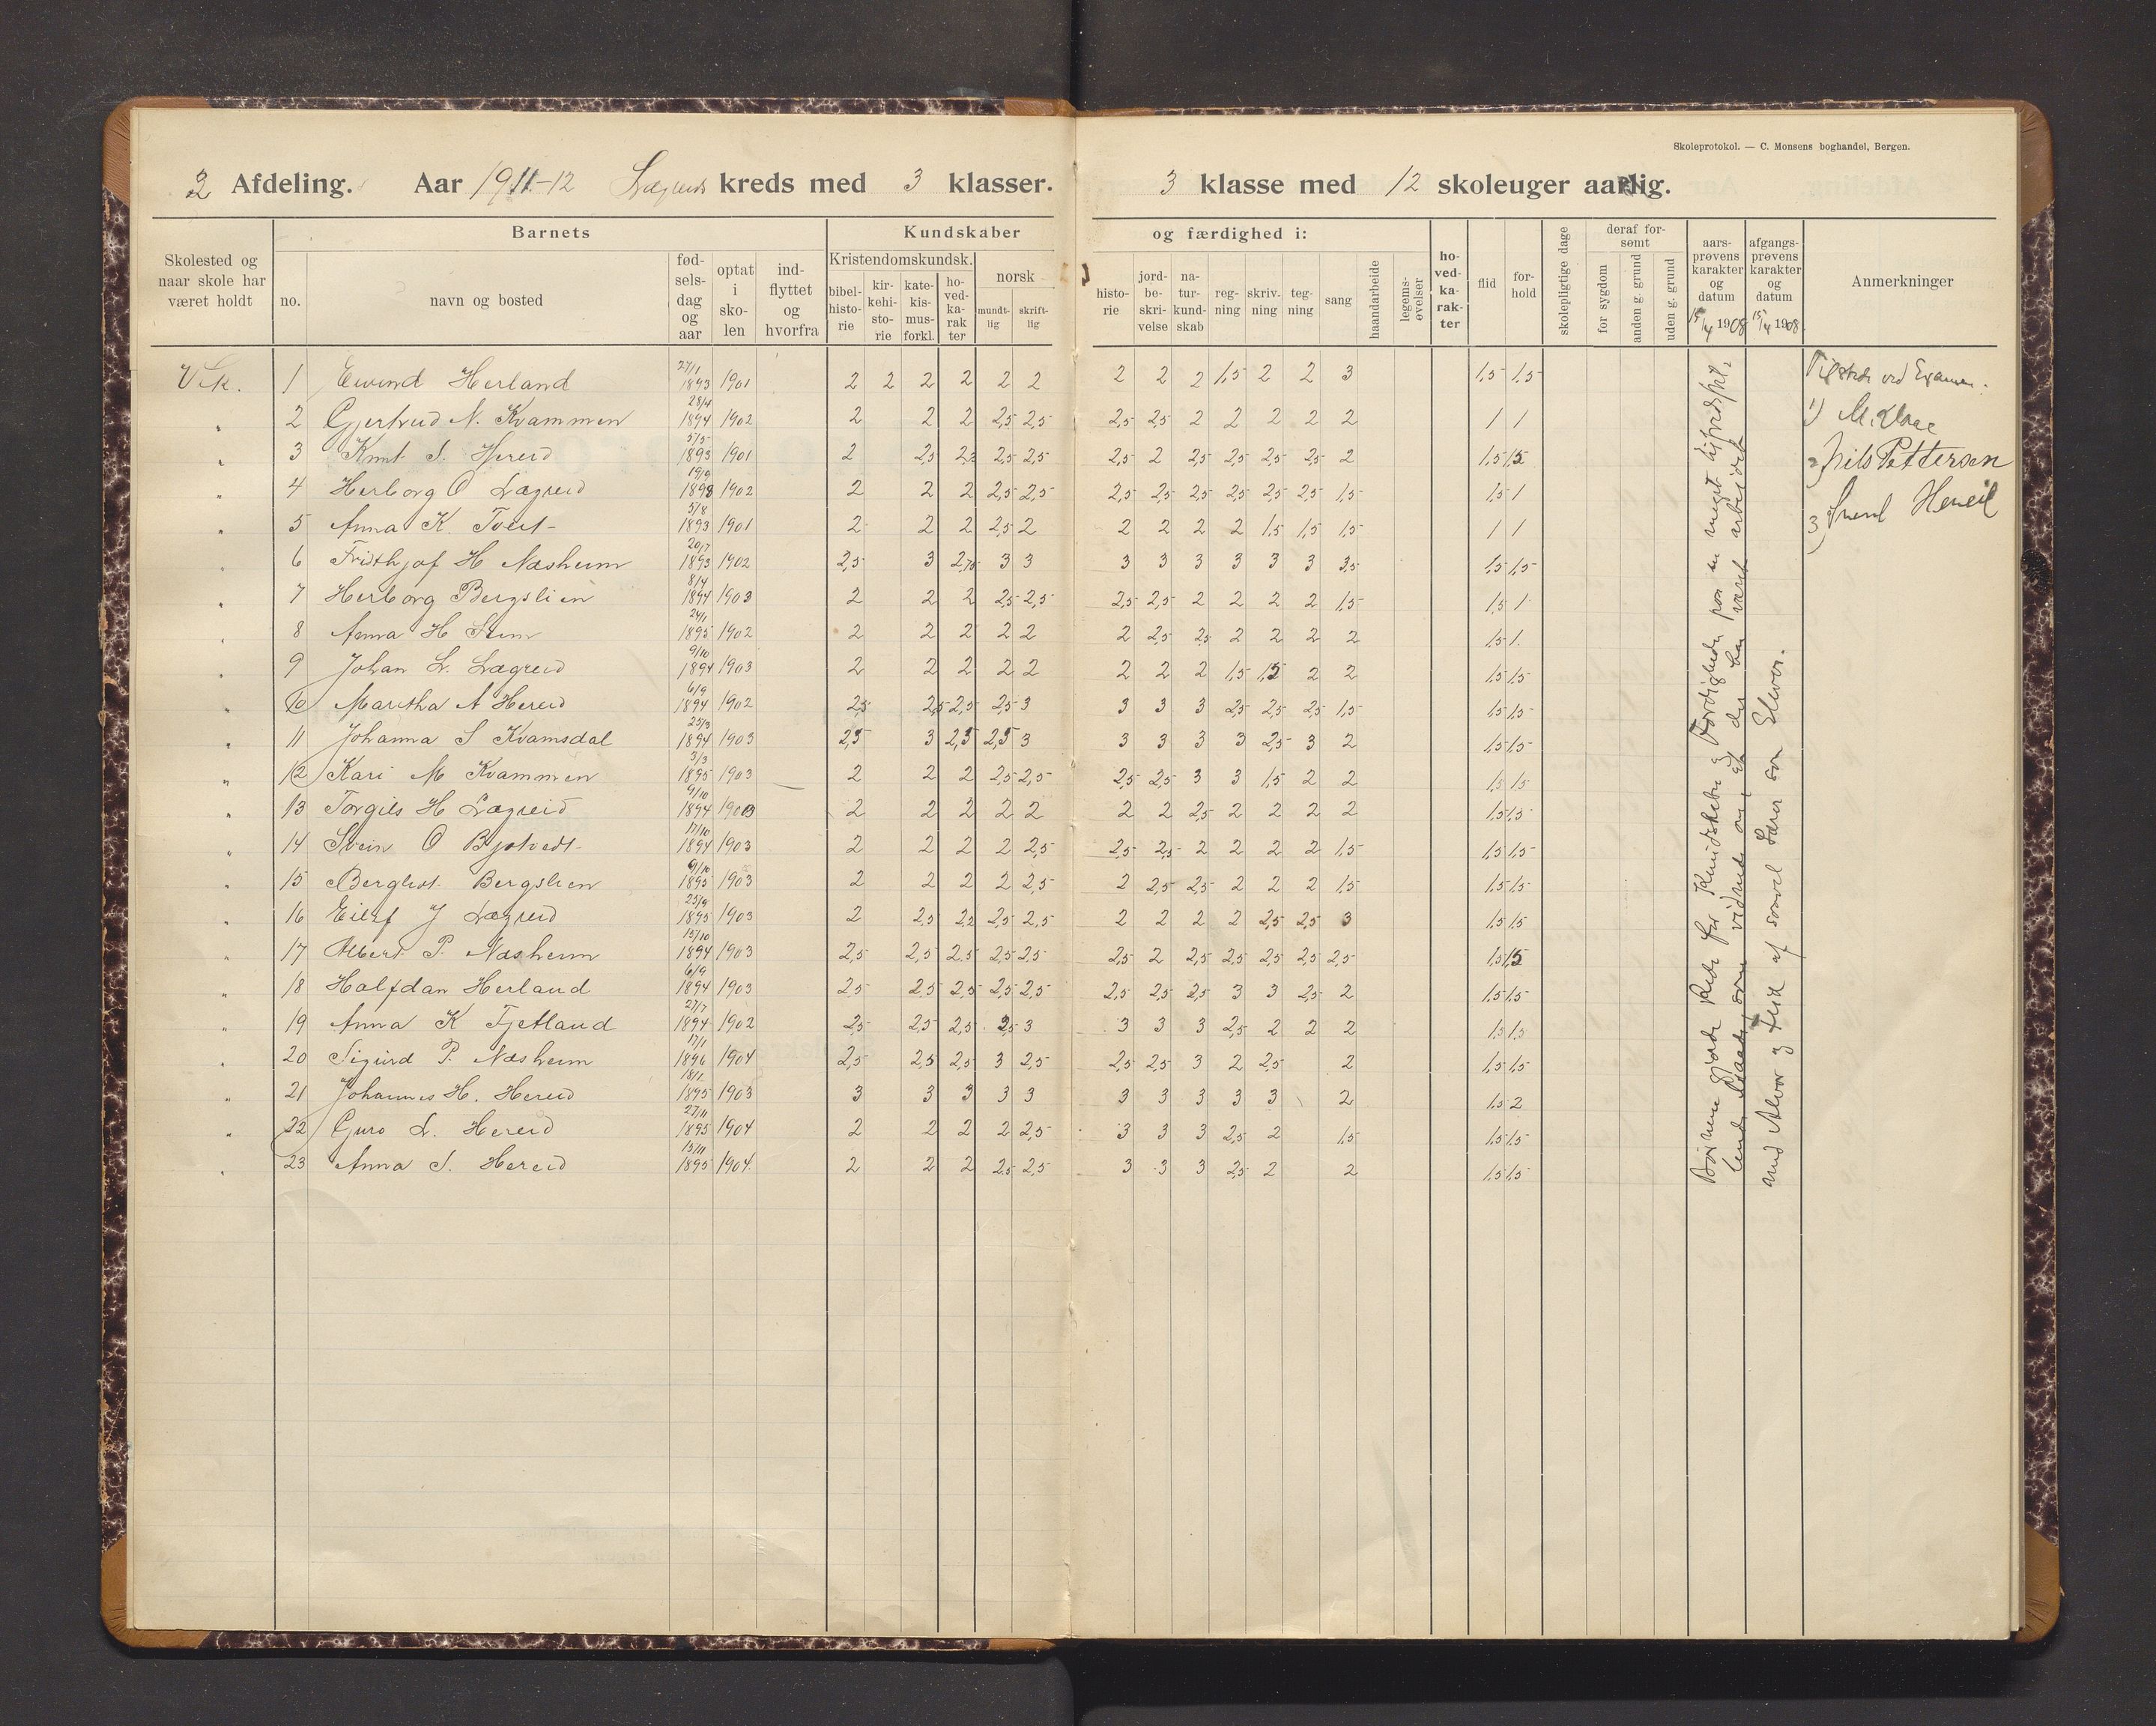 Skoleprotokol. — C. Monsens boghandel, Bergen.
2 Afdeling. Aar 1911-12 Lægreids kreds med 3 klasser. 3 klasse med 12 skoleuger aarlig.
Skolested og naar skole har været holdt
Barnets
no. navn og bosted
fød- sels- dag og aar
optat i sko- len
ind- flyttet og hvorfra
Kundskaber og færdighed i:
Kristendomskundsk.
bibel- histo- rie
kir- kehi- sto- rie
kate- kis- mus- forkl.
ho- ved- ka- rak ter
norsk
mundt- lig
skrift- lig
histo- rie
jord- be- skri- velse
na- tur- kund- skab
reg- ning
skriv- ning
teg- ning
sang
haandarbeide
legems- øvelser
ho- ved- ka- rak- ter
flid
for- hold
skolepligtige dage
deraf for- sømt
for sygdom
anden g. grund
uden g. grund
aars- prøvens karakter og datum 15/4 1908
afgangs- prøvens karakter og datum 15/4 1908
Anmerkninger
Vik. 1 Eivind Herland 27/1 1893 1901 2 2 2 2 2 2 2 2 2 1,5 2 2 3 1,5 1,5
" 2 Gjertrud N. Kvammen 28/4 1894 1902 2 2 2 2,5 2,5 2,5 2,5 2 2 2 2 2 1 1
" 3 Knut S. Hereid 5/5 1893 1901 2 2,5 2,5 2,5 2,5 2 2,5 2,5 2,5 2,5 2 1,5 1,5
" 4 Herborg O Lægreid 19/9 1893 1902 2 2 2 2,5 2,5 2,5 2,5 2,5 2,5 2,5 2,5 1,5 1,5 1
" 5 Anna K. Tveit 5/8 1893 1901 2 2 2 2,5 2 2 2 2 2 1,5 1,5 1,5 1 1
" 6 Fridthjof H Næsheim 20/7 1893 1902 2,5 3 2,75 3 3 3 3 3 3 3 3 3,5 1,5 1,5
" 7 Herborg Bergslien 8/4 1894 1903 2 2 2 2,5 2,5 2,5 2,5 2 2 2 2 1,5 1,5 1
" 8 Anna H 24/1 1895 1902 2 2 2 2 2 2 2,5 2,5 2 2 2 2 1,5 1.
" 9 Johan L. Lægreid 9/10 1894 1903 2 2 2 2 2 2 2 2 1,5 1,5 2 2 1,5 1,5
" 10 Martha A Hereid 6/9 1894 1902 2,5 2,5 2,5 2,5 3 3 3 3 2,5 2,5 2,5 1,5 1,5 1,5
" 11 Johanna S Kvamsdal 25/3 1894 1903 2,5 3 2,5 2,5 3 3 3 3 3 2,5 3 2 1,5 1,5
" 12 Kari M Kvammen 3/3 1895 1903 2 2 2 2,5 2,5 2,5 2,5 3 3 1,5 2 2 1,5 1,5
" 13 Torgils H Lægreid 9/10 1894 1903 2 2 2 2 2 2 2 2,5 2 2 2 2 1,5 1,5
" 14 Svein O Bjotvedt 17/10 1894 1903 2 2 2 2 2,5 2,5 2,5 2 2 2 2 1,5 1,5 1,5
" 15 Bergliot Bergslien 9/10 1895 1903 2 2 2 2 2,5 2 2,5 2,5 2 2 2 1,5 1,5 1,5
" 16 Eilef J Lægreid 23/9 1895 1903 2 2,5 2,5 2,5 2 2 2 2 2,5 2,5 3 1,5 1,5
" 17 Albert P. Næsheim 15/10 1894 1903 2,5 2,5 2,5 2,5 2,5 2,5 2 2,5 2,5 2,5 2,5 2,5 1,5 1,5
" 18 Halfdan Herland 6/9 1894 1903 2,5 2,5 2,5 2,5 2,5 2,5 2,5 2,5 3 3 2,5 2 1,5 1,5
" 19 Anna K Tjetland 27/7 1894 1902 2,5 2,5 2,5 2,5 3 3 3 3 2,5 2 2 2 1,5 1,5
" 20 Sigurd P. Næsheim 17/1 1896 1904 2,5 2,5 2,5 3 2,5 2,5 2,5 3 2 2,5 2 1,5 1,5
" 21 Johannes H. Hereid 18/1 1895 1903 3 3 3 3 3 3 3 3 3 3 2 1,5 2
" 22 Guro L. Hereid 27/11 1895 1904 2 2 2 2 2,5 3 3 3 2,5 2 1,5 1,5 1,5
" 23 Anna S. Hereid 15/11 1895 1904. 2 2 2 2,5 2,5 3 3 3 2,5 2 2 1,5 1,5
Børnene gjorde Rede for Kundskaber og Færdigheder paa en meget tilfredsstil-
lende Maade, som vidnede om, at der har været arbeidet
med Alvor og Flid af saavel Lærer som Elever.
Tilstede ved Examen.
1)
2) Nils Pettersen
3)